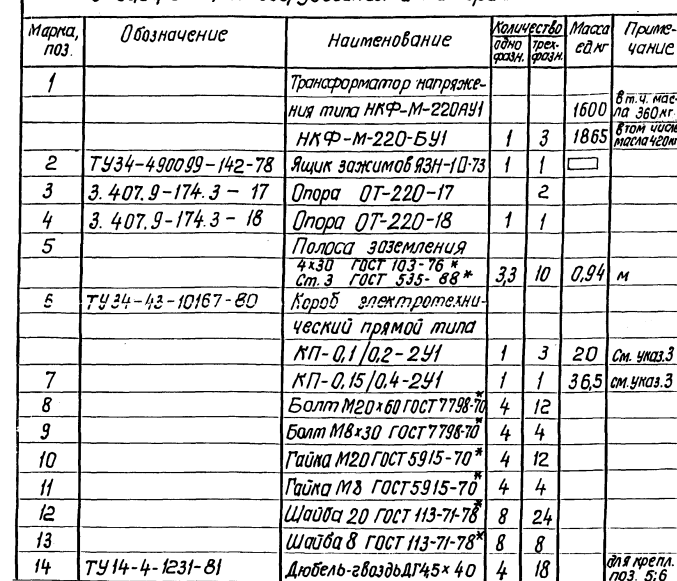 Марка, поз. Обозначение Наименование Количество Масса ед.кг Приме-чание
одно фазн. трех-фазн.
1 Трансформатор напряже-
ния типа НКФ-М-220АУ1 1600 в т.ч. мас-ла 360кг.
НКФ-М-220-БУ1 1 3 1865 в том числе масла 420кг
2 ТУ34-490099-142-78 Ящик зажимов ЯЗН-1О-73 1 1
3 3.407.9-174.3-17 Опора ОТ-220-17 2
4 3.407.9-174.3-18 Опора ОТ-220-18 1 1
5 Полоса заземления
4х30 ГОСТ 103-76*
Ст.3 ГОСТ 535-88* 3,3 10 0,94 м
6 ТУ34-43-10167-80 Короб электротехни-
ческий прямой типа
КП-0,1/0,2-2У1 1 3 20 См. указ.3
7 КП-0,15/0,4-2У1 1 1 36,5 см.указ.3
8 Болт М20х60 ГОСТ 7798-70* 4 12
9 Болт М8х30 ГОСТ 7798-70* 4 4
10 Гайка М20 ГОСТ 5915-70* 4 12
11 Гайка М8 ГОСТ 5915-70* 4 4
12 Шайба 20 ГОСТ 113-71-78* 8 24
13 Шайба 8 ГОСТ 113-71-78* 8 8
14 ТУ14-4-1231-81 Дюбель-гвоздь ДГ4,5х40 4 18 для крепл. поз. 5;6